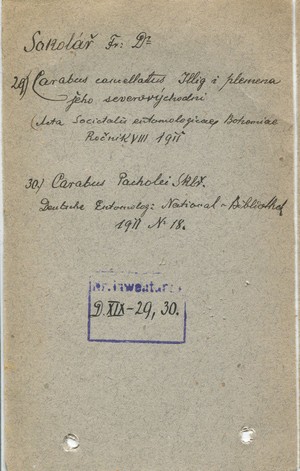 Sokolář Fr: Dr
29) Carabus cancellatus Illig i plemena
jeho severovýchodní
(Acta Societatis entomologicae Bohemiae
Ročník VIII 1911
30) Carabus Pacholei Sklř.
Deutsche Entomolog: National-Bibliothek
1911 No 18.
nr. inwentarz
D XIX-29, 30.